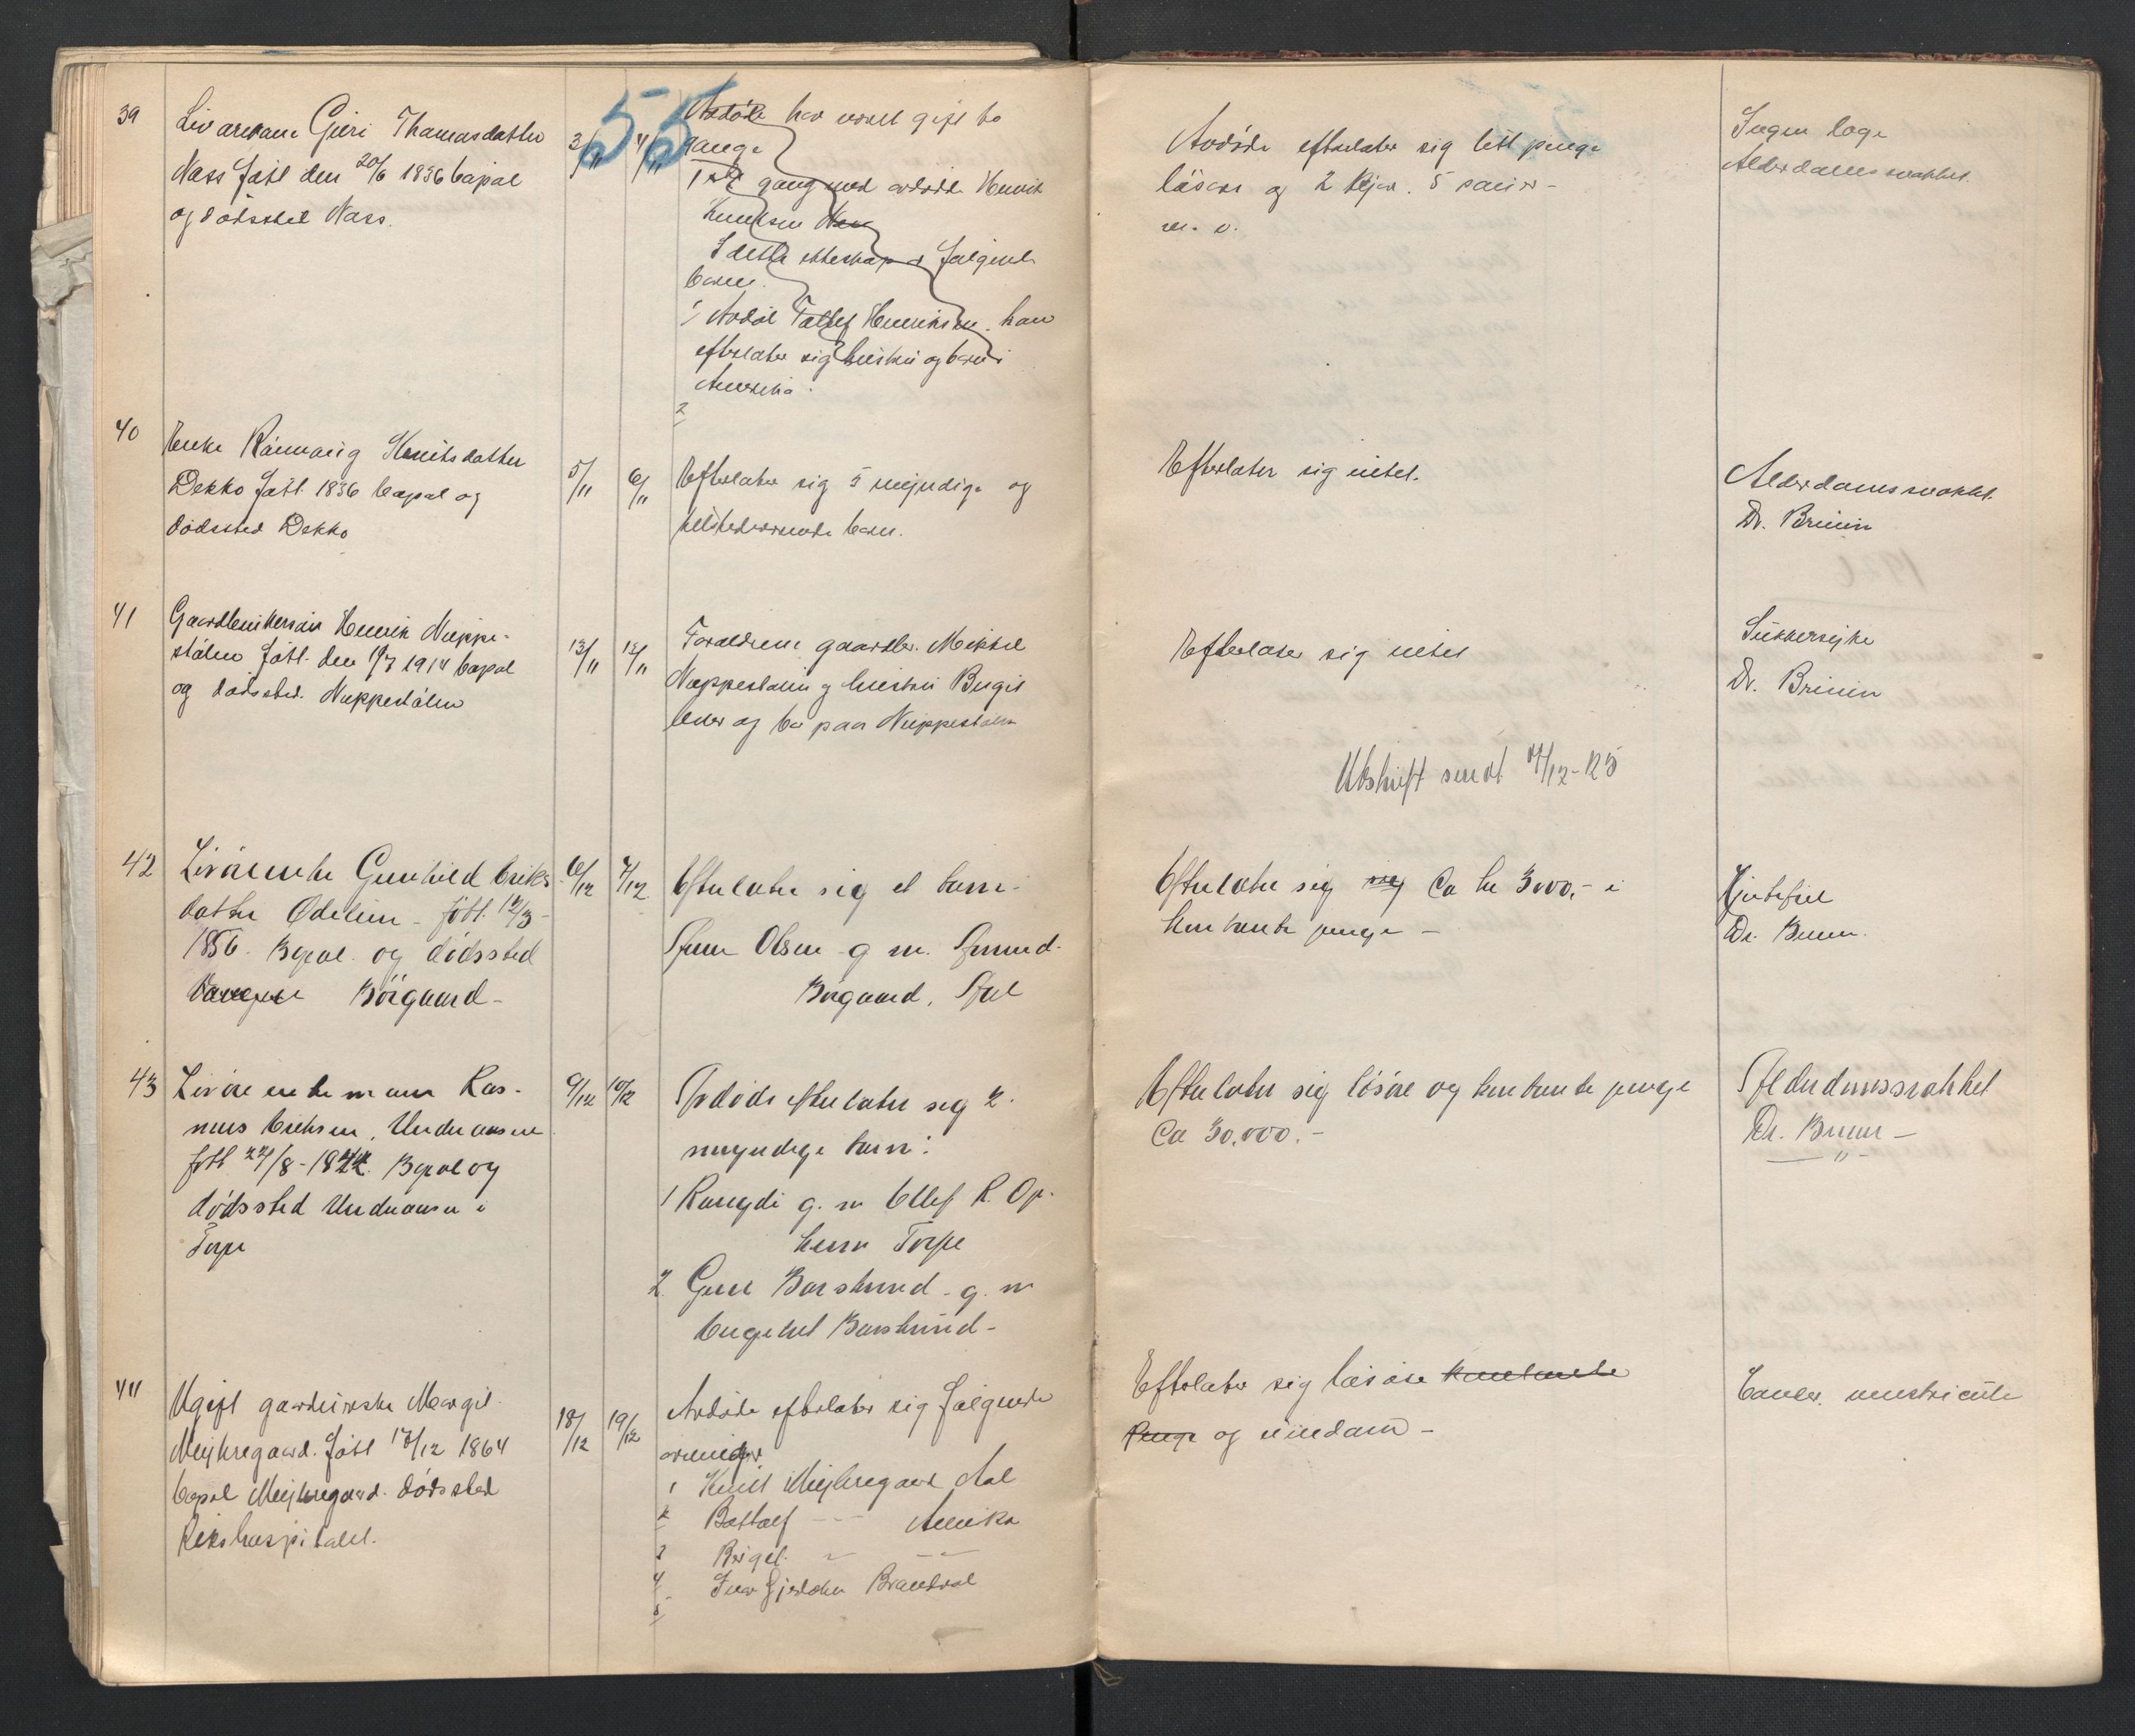 39
Livøreane Guri Thomasdatter
Næss født den 20/6 1836 bopæl
og dødssted Næss.
3/11
4/11
55
Avdøde har været gift to
gange
1ste gang med avdøde Henrik
Knutsen
I dette ekteskap er følgende
barn.
1 Avdøl Tollef Henriksen. han
efterlater sig hustru og barn i
Amerika.
2
Avdøde efterlater sig litt penge
løsøre og 2 kjør. 5 sauer -
m. v.
Ingen læge
Alderdomssvakhet.
40
Enke Rannveig Knutsdatter
Dekko født 1836 bopæl og
dødssted Dekko
5/11
6/11
Efterlater sig 5 myndige og
tilstedeværende barn.
Efterlater sig intet.
Alderdomssvakhet.
Dr. Bruun
41
Gaardbrukersøn Henrik Nuppe-
stølen født den 1914 bopæl
og dødssted. Nuppestølen
13/11
12/11
Forældrene gaardbr. Mikkel
Nuppestølen og hustru Birgit
lever og bor paa Nuppestølen
Efterlater sig intet
Sukkersyke
Dr. Bruun
Utskrift sendt /12-25
42
Livøreenke Gunhild Eriks
datter Ødelien - født 12/3 -
1856. Bopæl og dødssted
Børgaard -
6/12
7/12
Efterlater sig et barn:
Olsen g m. Amund
Børgaard, Aal
Efterlater sig Ca kr 3000,- i
kontante penge -
Hjertefeil
Dr. Bruun.
43
Livøreenkemann Ras-
mus Eriksen, Underaasen
født 24/8-1844. Bopæl og
dødssted Underaasen i
Torpe
9/12
10/12
Avdøde efterlater sig 2
myndige barn:
1 Rangdi g. m Ellef R. Op-
heim Torpe
2. Guri Barskrind - g. m
Engebret Barskrind -
Efterlater sig løsøre og kontante penge
Ca 30.000.-
Alderdomssvakhet
Dr. Bruun -
— " —
44
Ugift gardeierske Margit
Mejlregaard. født 17/12 1864
bopæl Mejlregaard. dødssted
Rikshospitalet.
18/12
19/12
Avdøde efterlater sig følgende
arvinger
1 Knut Mejlregaard Aal
2 Bottolf - - Amerika
3 Birgit. - - -
4
5
Efterlater sig løsøre kontante
Penge og eiendom -
Cancer. ventriculi